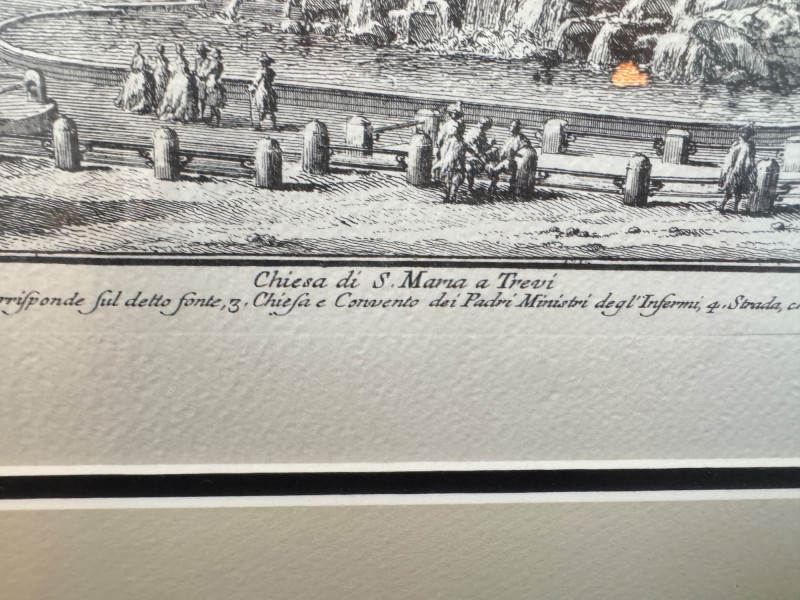 Chiesa di S. Maria a Trevi
rrisponde sul detto fonte, 3. Chiesa e Convento dei Padri Ministri degl'Infermi, 4. Strada, c